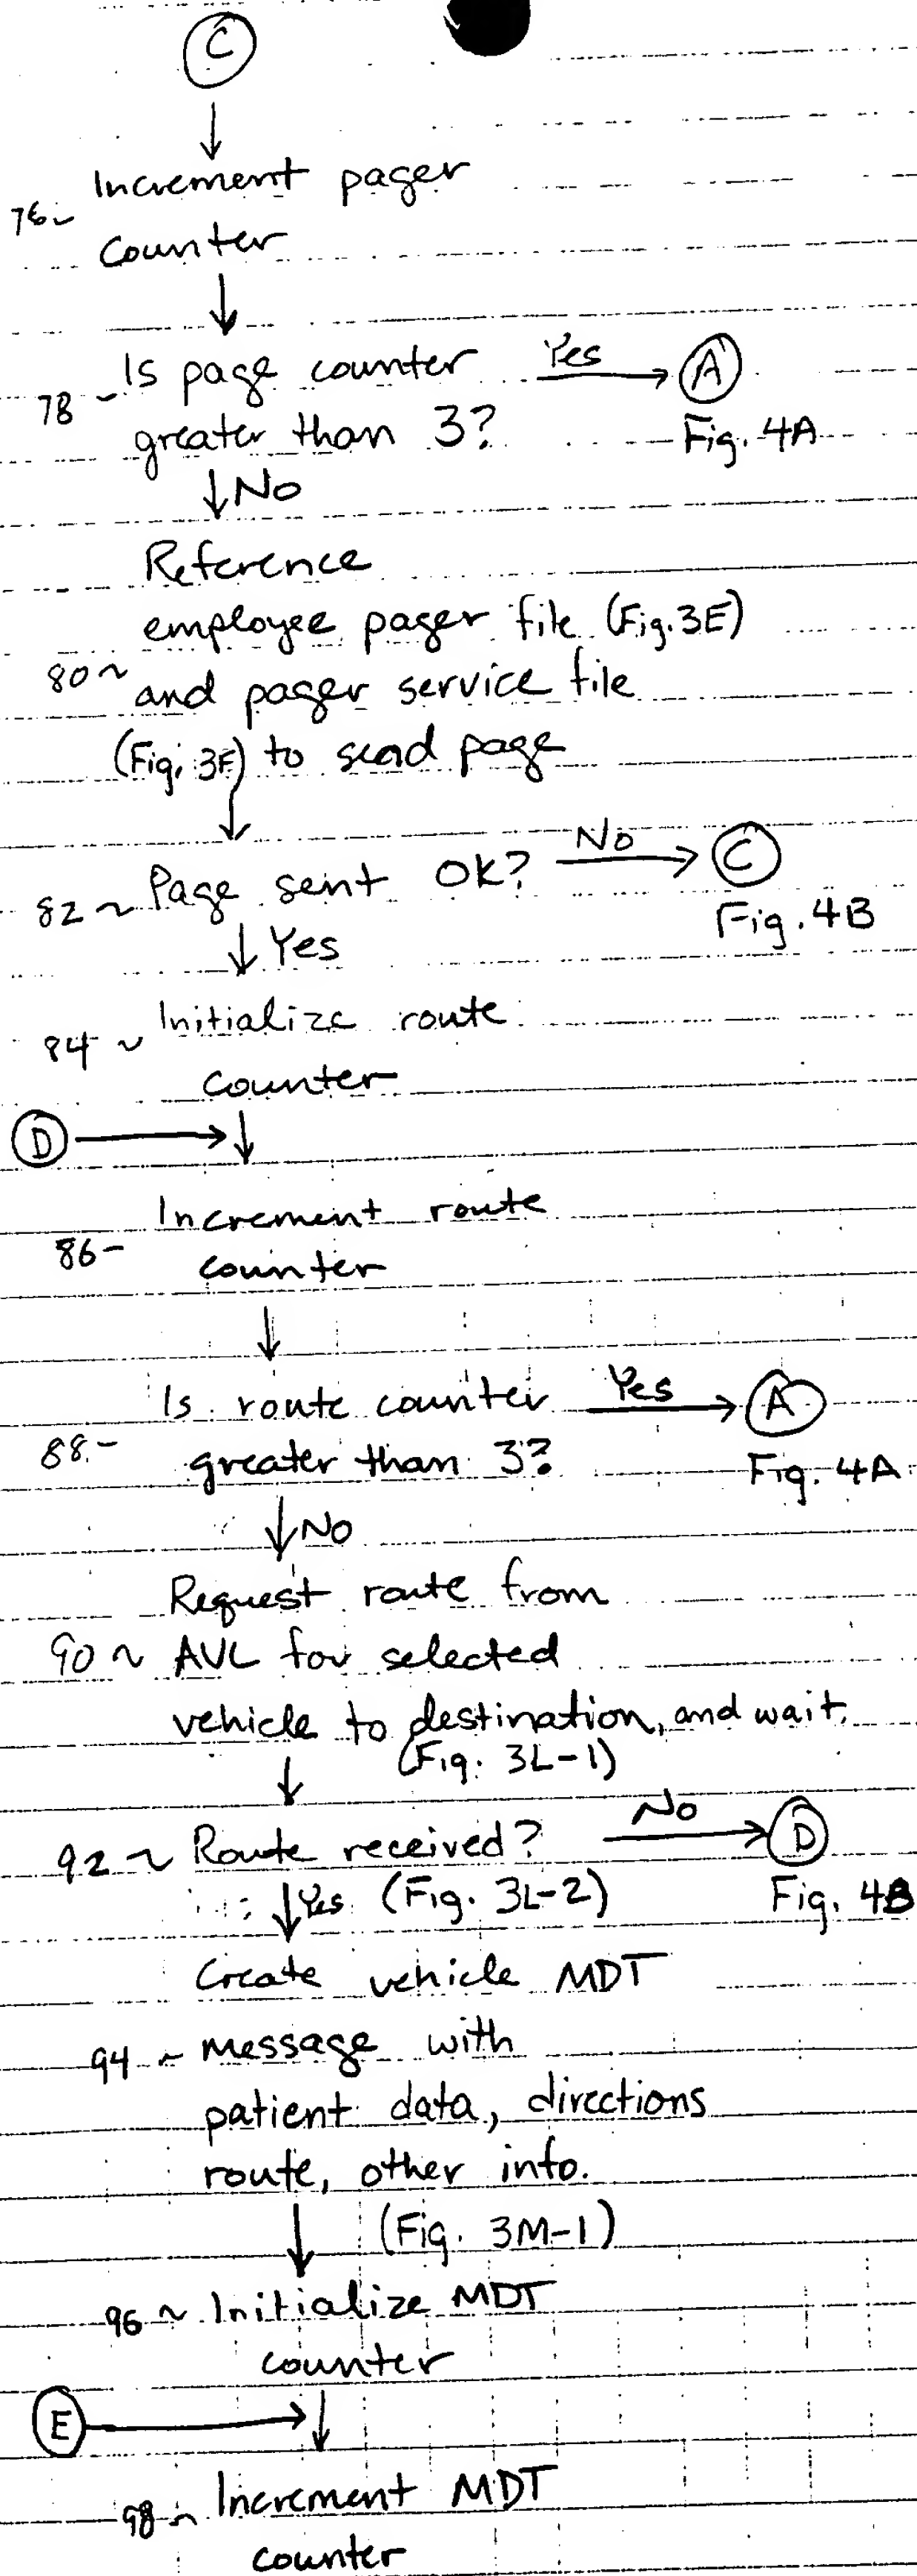 C
Increment pager
76~
Counter
Is page counter Yes A
78 -
greater than 3? Fig. 4A
No
Reference
employee pager file (Fig. 3E)
80~
and pager service file
(Fig. 3F) to send page
Page sent OK? No C
82~
Fig. 4B
Yes
Initialize route
84 ~
counter
D
Increment route
86-
counter
Is route counter Yes A
88.-
greater than 3? Fig. 4A
No
Request route from
90 ~ AVL for selected
vehicle to destination, and wait.
(Fig. 3L-1)
No
92 ~ Route received? D
Yes (Fig. 3L-2) Fig. 4B
Create vehicle MDT
94 ~ message with
patient data, directions
route, other info.
(Fig. 3M-1)
96 ~ Initialize MDT
counter
E
98 ~ Increment MDT
counter